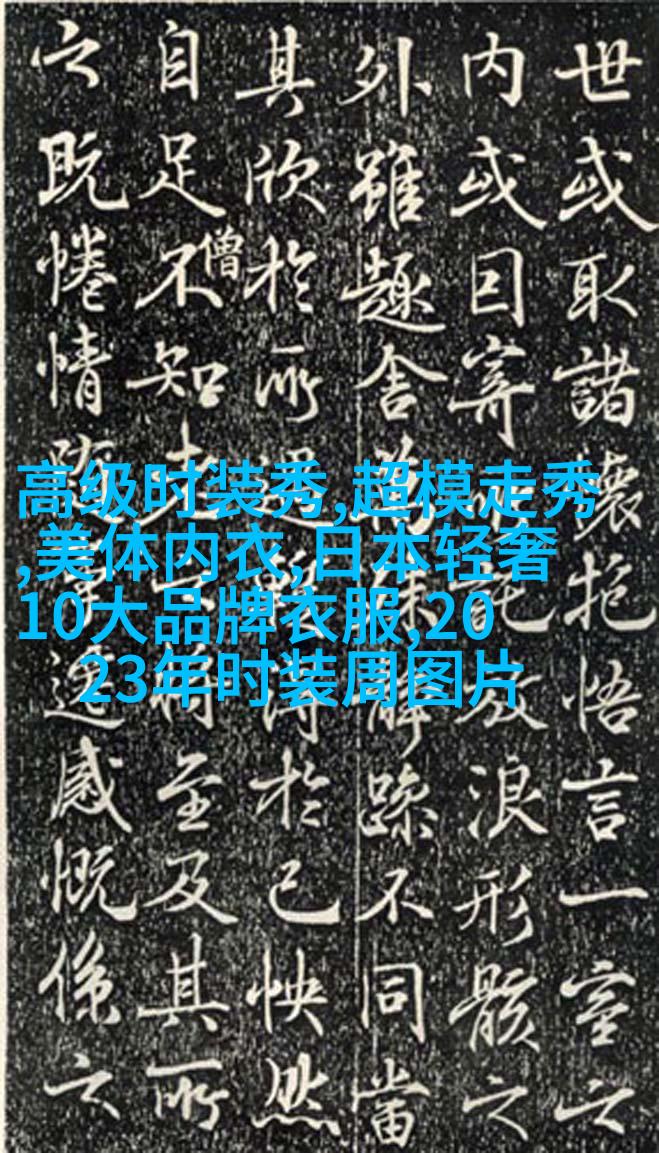 高级时装秀,超模走秀
,美体内衣,日本轻奢
10大品牌衣服,20
23年时装周图片
世或取諸懷抱悟言一室之
内或因寄所託放浪形骸之
外雖趣舍萬殊靜躁不同當
其欣於所遇蹔得於己怏然
僧
自足不知老之將至及其所
之既惓情隨事遷感慨係之